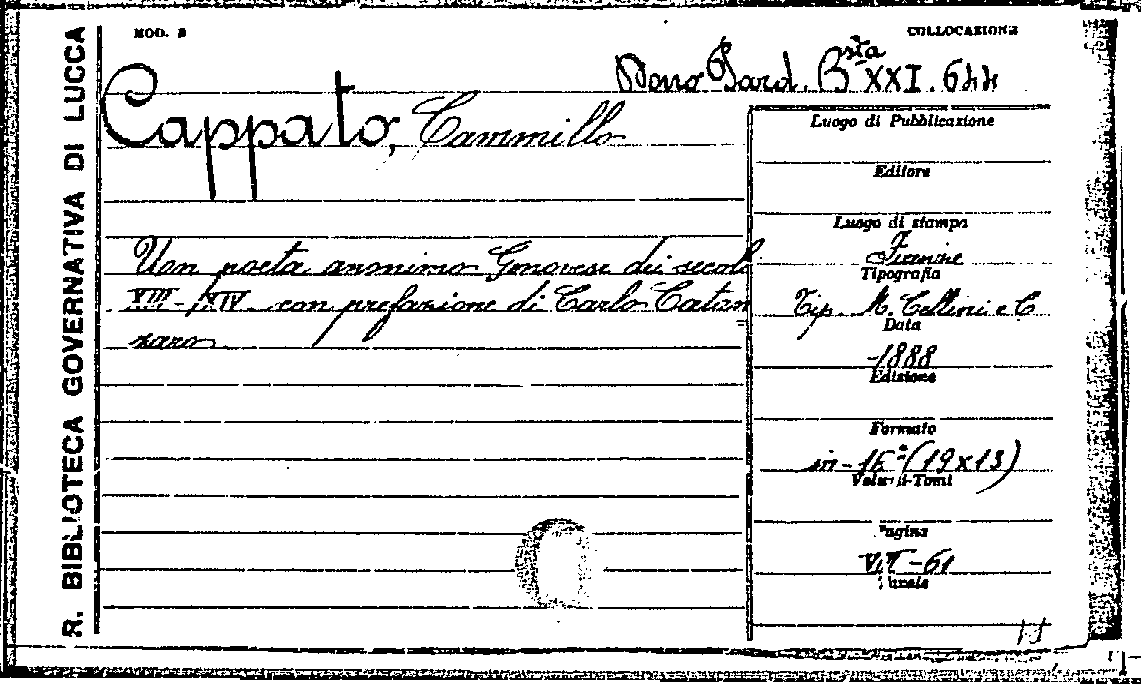 R. BIBLIOTECA GOVERNATIVA DI LUCCA
MOD. 2
COLLOCAZIONE
Dono Pard. Bsta XXI. 644
Cappato, Cammillo
Un poeta anonimo Genovese dei secoli
XIII-XIV con prefazione di Carlo Catan=
zaro
Luogo di Pubblicazione
Editore
Luogo di stampa
Firenze
Tipografia
Tip. M. Cellini e C
Data
1888
Edizione
Formato
in-16° (19x13)
Volumi-Tomi
Pagine
VII-61
15